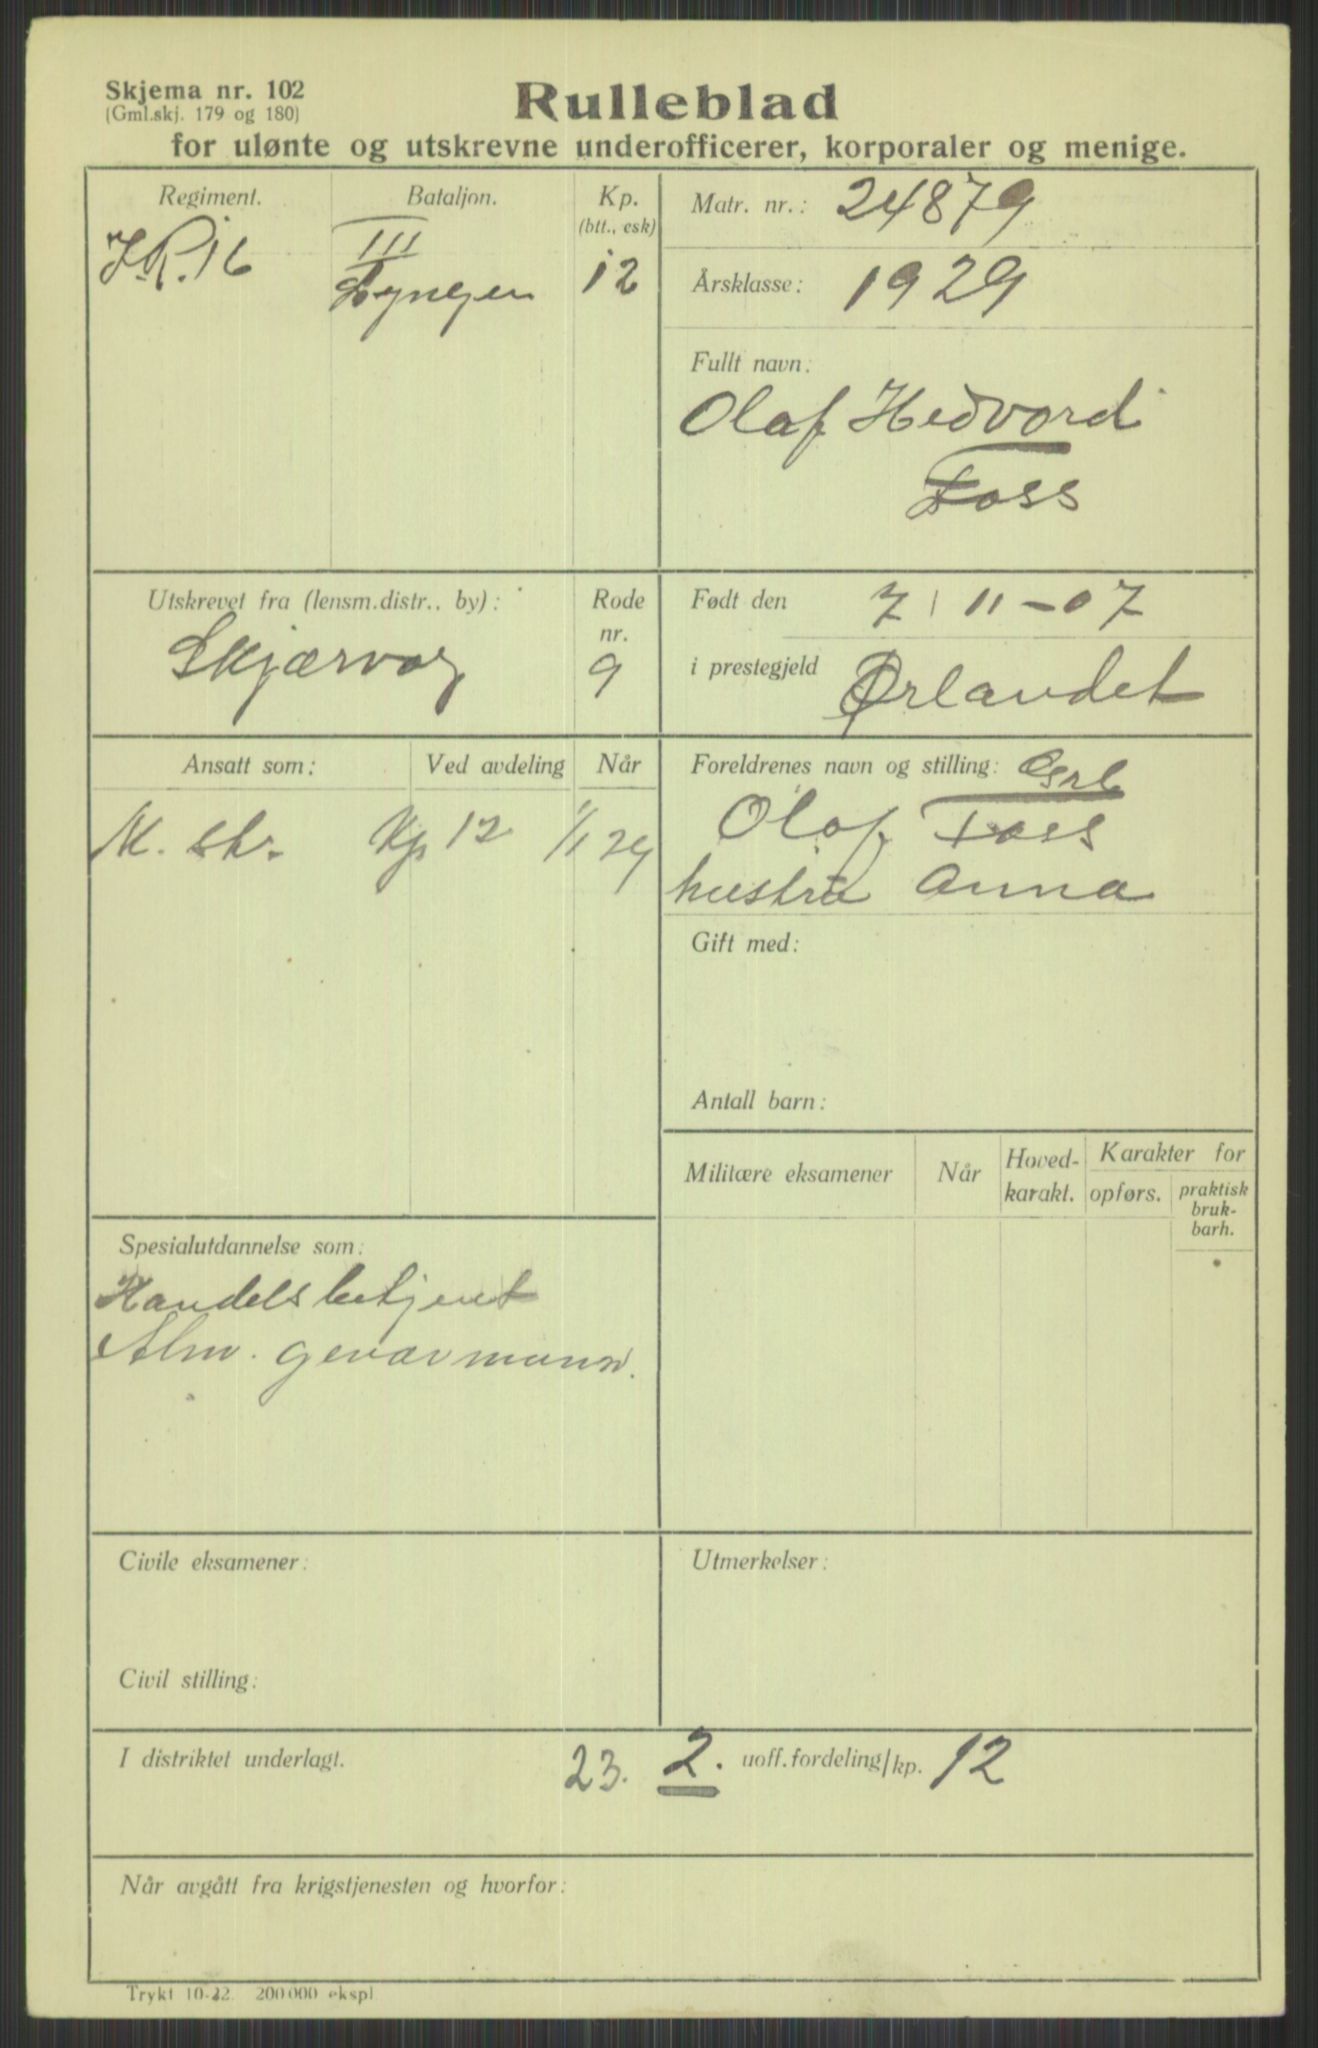 Skjema nr. 102
(Gml.skj. 179 og 180)
Rulleblad
for ulønte og utskrevne underofficerer, korporaler og menige.
Regiment.
I.R. 16
Bataljon.
III
Lyngen
Kp.
(btt., esk)
12
Matr. nr.: 24879
Årsklasse: 1929
Fullt navn:
Olaf Hedvord
Foss
Utskrevet fra (lensm.distr., by):
Skjærvøy
Rode
nr.
9
Født den 7/11-07
i prestegjeld Ørlandet
Ansatt som: Ved avdeling Når
M. skr. Kp 12 1/1 29
Foreldrenes navn og stilling:
Olaf Foss
hustru Anna
Gift med:
Antall barn:
Militære eksamener
Når
Hoved-
karakt.
Karakter for
opførs.
praktisk
bruk-
barh.
Spesialutdannelse som:
Handelsbetjent
Alm. geværmann.
Civile eksamener:
Utmerkelser:
Civil stilling:
I distriktet underlagt. 23. 2. uoff.fordeling/kp. 12
Når avgått fra krigstjenesten og hvorfor:
Trykt 10-22. 200000 ekspl